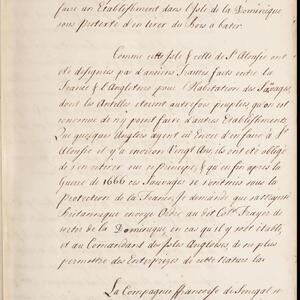 faire un Etablissement dans l'Isle de la Dominique
sous pretexte d'en tirer du bois a batir.
Comme cette Isle & celle de St. Alousie ont
eté designées par d'anciens Traités faits entre la
France & l'Angleterre pour l'Habitation des Sauvages,
dont les Antilles etoient autrefois peuplées, qu'on est
convenu de n'y point faire d'autres Etablissements,
Que quelques Anglois ayant eu Envie d'en faire à St.
Alousie il y a environ Vingt Ans, ils ont été obligé
de s'en retirer sur ce principe, & qu'enfin après la
Guerre de 1666 ces Sauvages se sont mis sous la
Protection de la France, Je demande que sa Majesté
Britannique envoye Ordre au dit Coll. Frayer de
sortir de la Dominique, en cas qu'il y soit établi,
et au Comandant des Isles Angloises, de ne plus
permettre des Entreprises de cette Nature la.
La Compagnie Francoise de Senegal se